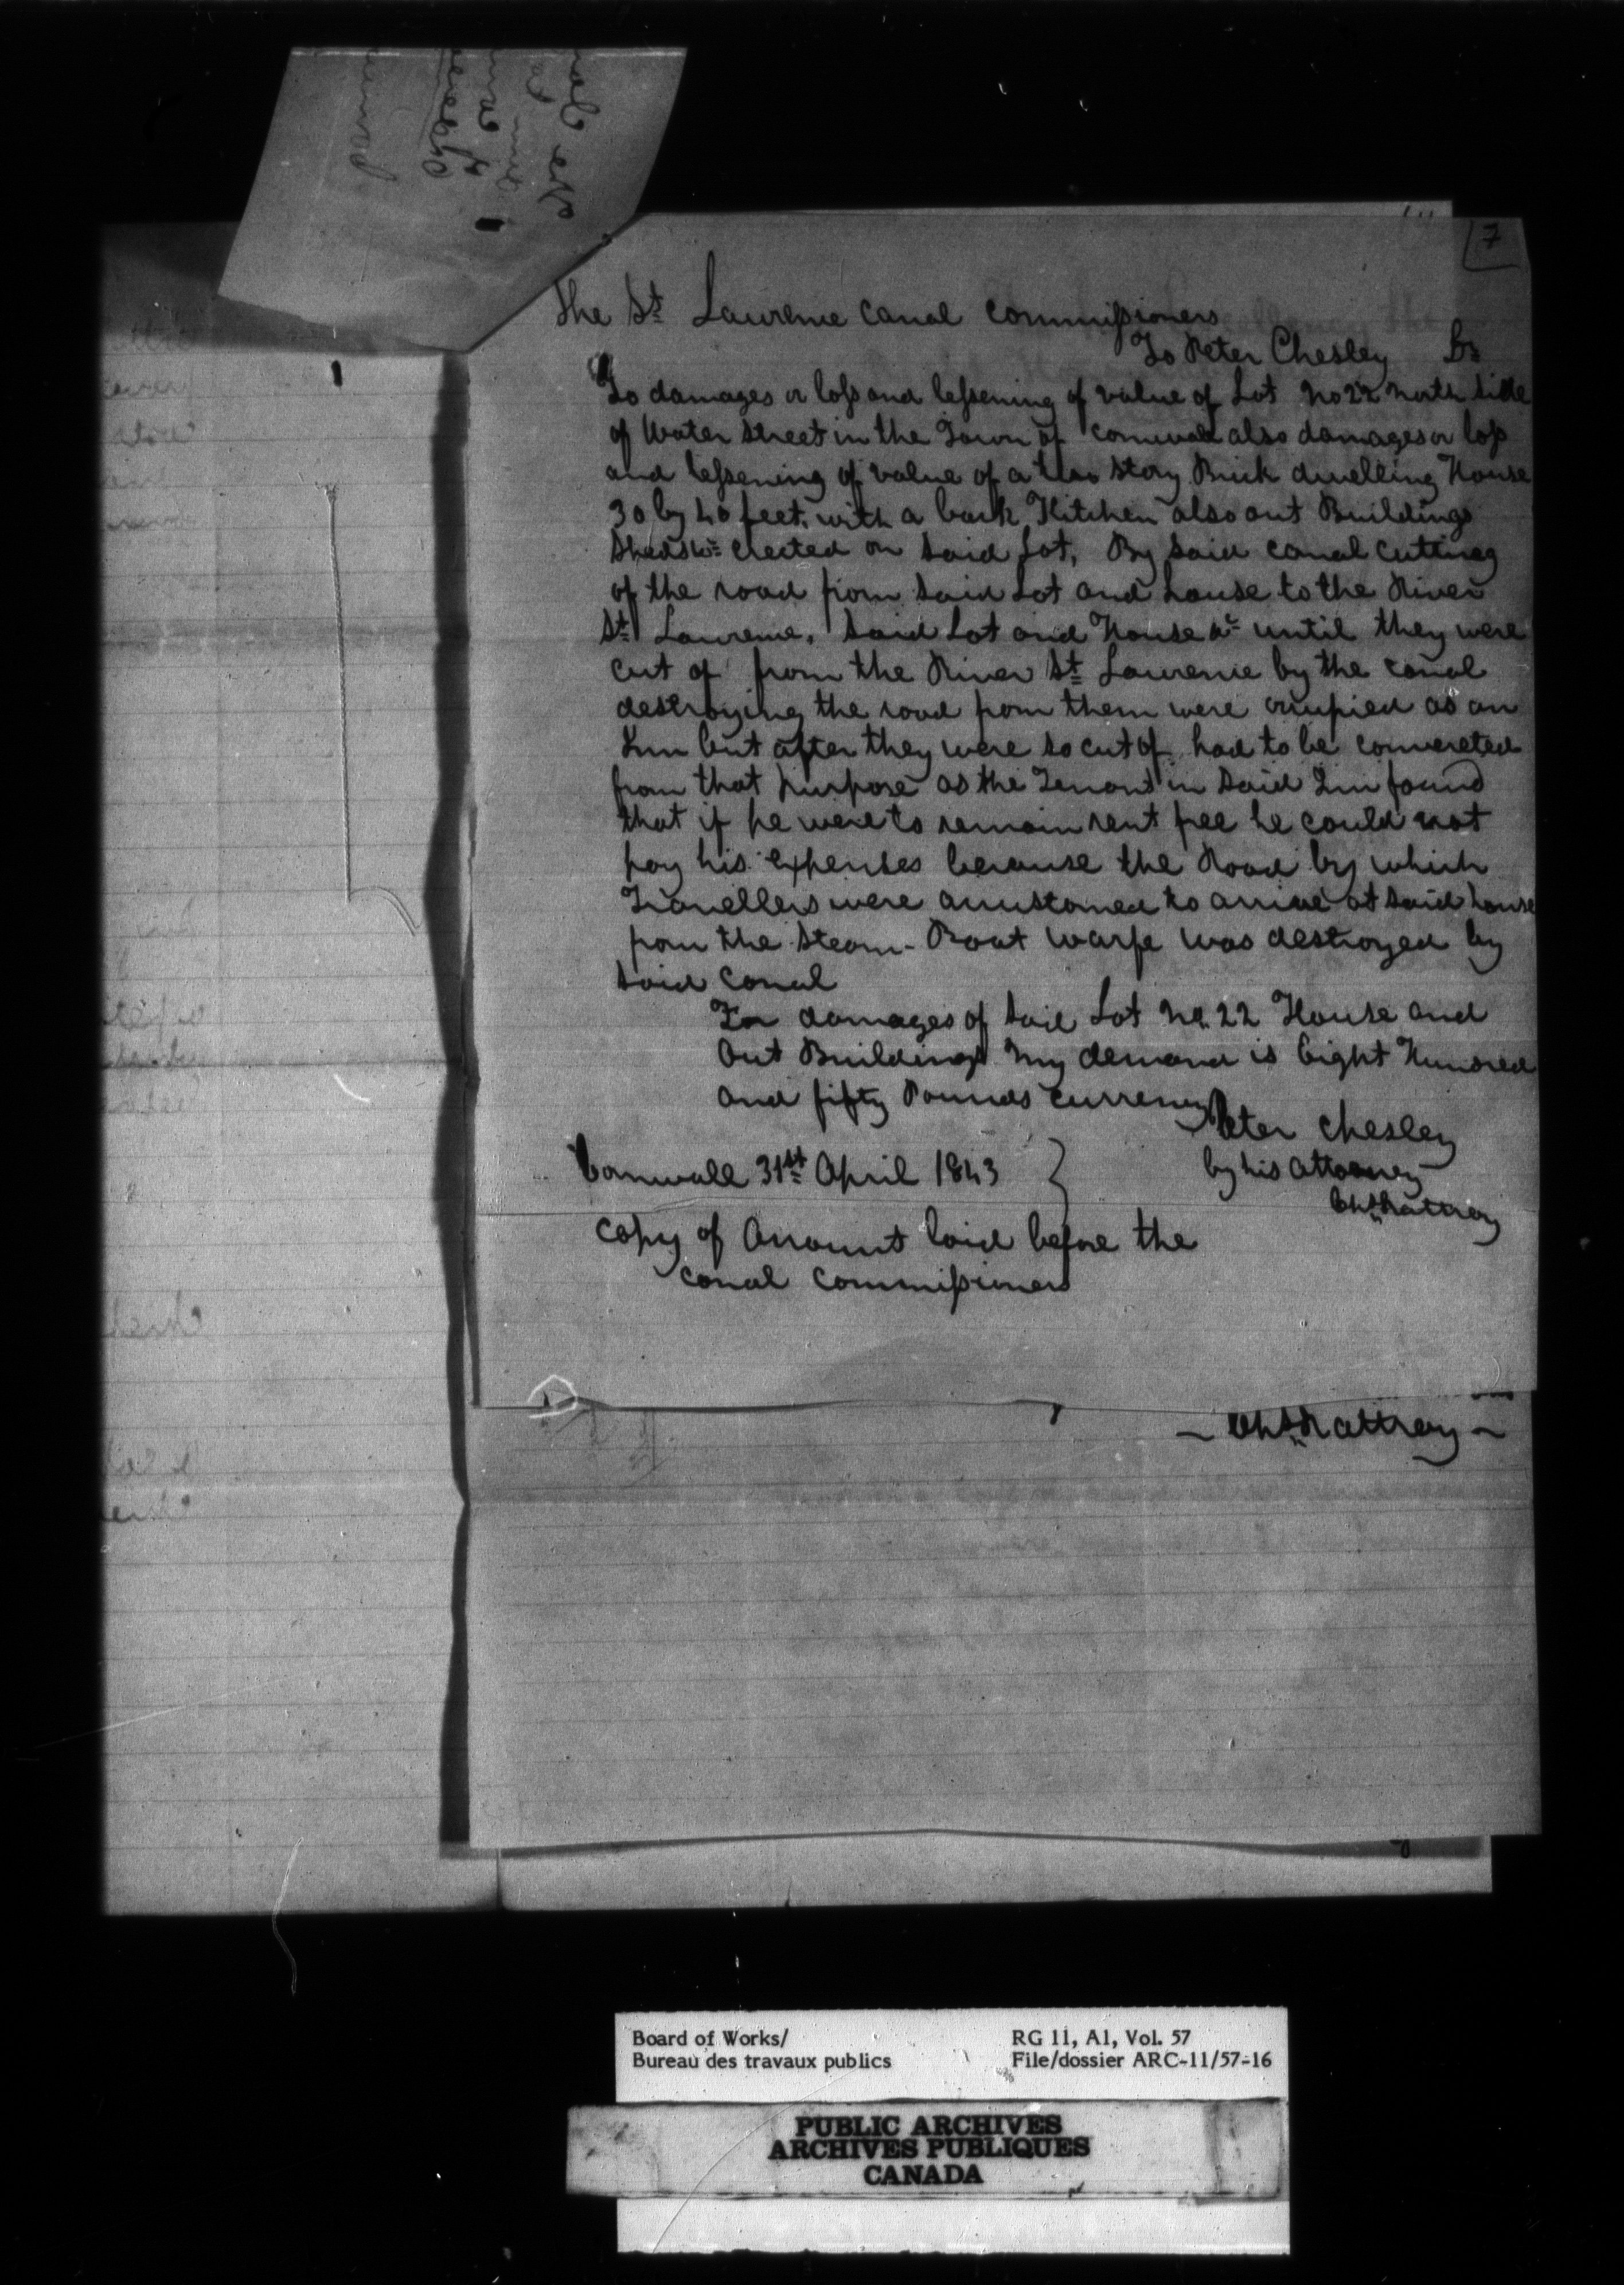 7
The St. Laurence canal commissioners
To Peter Chesley Dr.
To damages or loss and lessening of value of Lot No 22 north side
of Water street in the Town of Cornwall also damages or loss
and lessening of value of a two story Brick dwelling House
30 by 40 feet, with a back Kitchen also out Buildings
Sheds &c erected on said Lot, By said canal cutting
of the road from said Lot and house to the River
St. Laurence, Said Lot and House &c until they were
cut of from the River St. Laurence by the canal
destroying the road from them were occupied as an
Inn but after they were so cut of had to be convereted
from that purpose as the Tenant in said Inn found
that if he were to remain rent free he could not
pay his expenses because the Road by which
Travellers were accustomed to arrive at said house
from the Steam-Boat warfe was destroyed by
said canal
For damages of said Lot No. 22 House and
Out Buildings my demand is Eight Hundred
and fifty Pounds Currency
Peter Chesley
by his Attorney
Chs Rattray
Cornwall 31st April 1843
Copy of Account laid before the
canal commissioners
- Chs Rattray -
Board of Works/
Bureau des travaux publics
RG 11, A1, Vol. 57
File/dossier ARC-11/57-16
PUBLIC ARCHIVES
ARCHIVES PUBLIQUES
CANADA